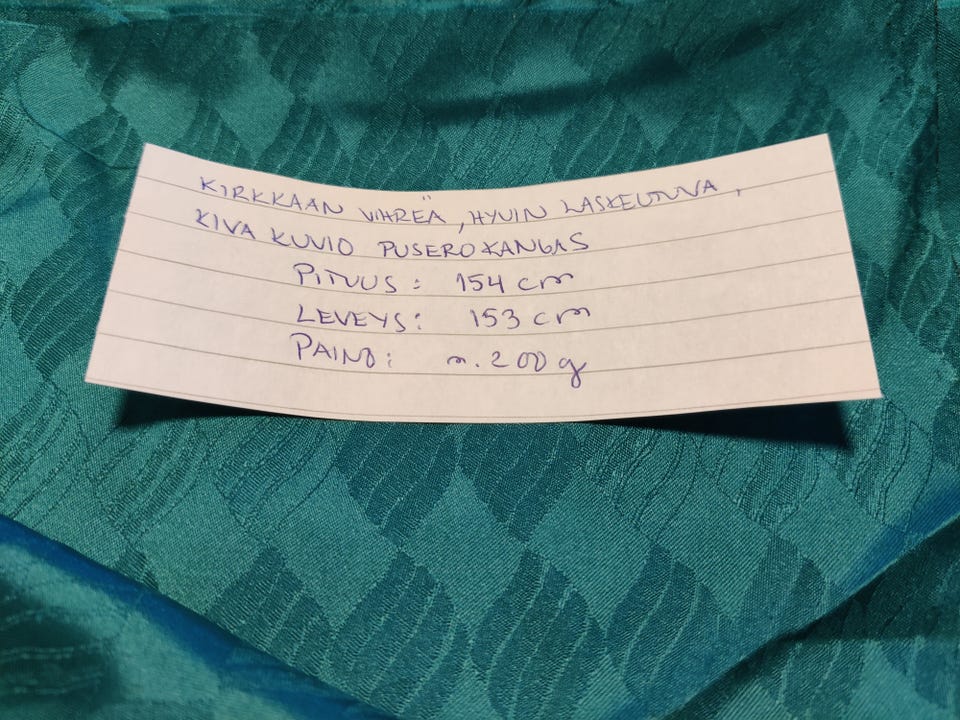 KIRKKAAN VIHREÄ, HYVIN LASKEUTUVA,
KIVA KUVIO PUSEROKANGAS
PITUUS: 154 cm
LEVEYS: 153 cm
PAINO: n. 200 g